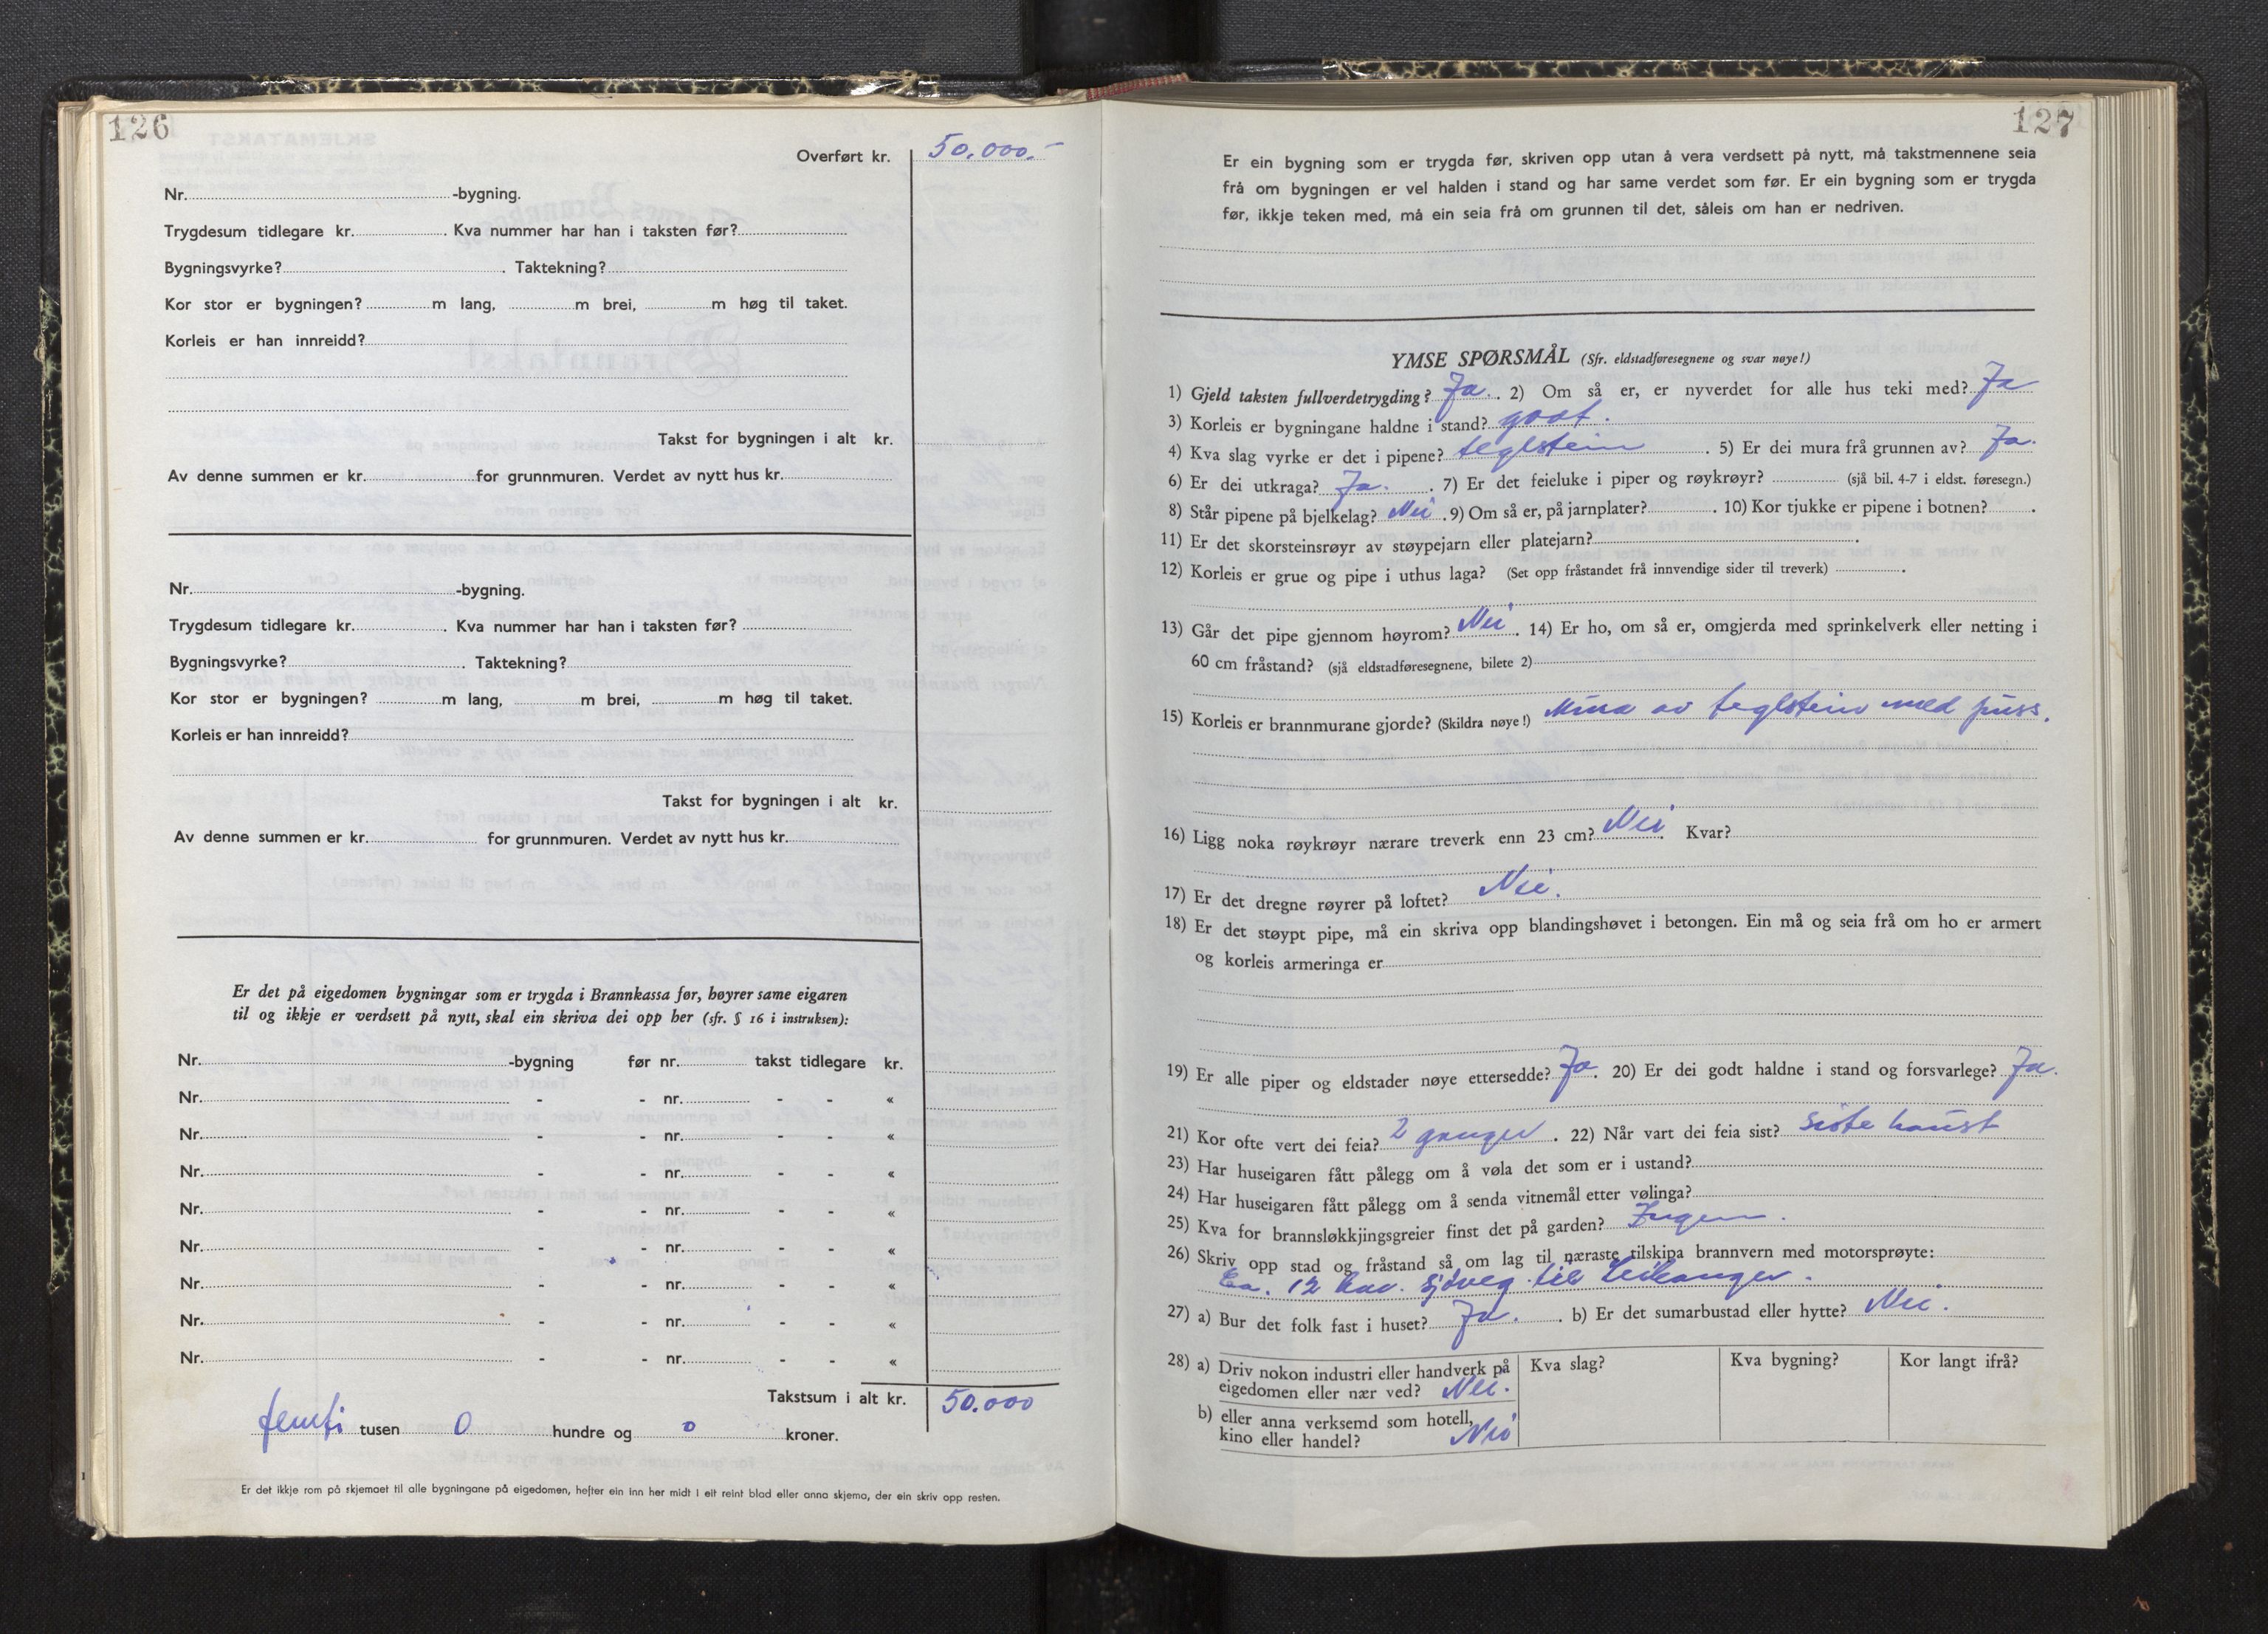 126
Overført kr. 50.000.-
Nr. -bygning.
Trygdesum tidlegare kr. . Kva nummer har han i taksten før?
Bygningsvyrke? . Taktekning?
Kor stor er bygningen? m lang, m brei, m høg til taket.
Korleis er han innreidd?
Takst for bygningen i alt kr.
Av denne summen er kr. for grunnmuren. Verdet av nytt hus kr.
Nr. -bygning.
Trygdesum tidlegare kr. . Kva nummer har han i taksten før?
Bygningsvyrke? . Taktekning?
Kor stor er bygningen? m lang, m brei, m høg til taket.
Korleis er han innreidd?
Takst for bygningen i alt kr.
Av denne summen er kr. for grunnmuren. Verdet av nytt hus kr.
Er det på eigedomen bygningar som er trygda i Brannkassa før, høyrer same eigaren
til og ikkje er verdsett på nytt, skal ein skriva dei opp her (sfr. § 16 i instruksen):
Nr. -bygning før nr. takst tidlegare kr.
Nr. - - nr. - - «
Nr. - - nr. - - «
Nr. - - nr. - - «
Nr. - - nr. - - «
Nr. - - nr. - - «
Nr. - - nr. - - «
Nr. - - nr. - - «
Nr. - - nr. - - «
Takstsum i alt kr. 50.000
femti tusen 0 hundre og 0 kroner.
Er det ikkje rom på skjemaet til alle bygningane på eigedomen, hefter ein inn her midt i eit reint blad eller anna skjema, der ein skriv opp resten.
127
Er ein bygning som er trygda før, skriven opp utan å vera verdsett på nytt, må takstmennene seia
frå om bygningen er vel halden i stand og har same verdet som før. Er ein bygning som er trygda
før, ikkje teken med, må ein seia frå om grunnen til det, såleis om han er nedriven.
YMSE SPØRSMÅL (Sfr. eldstadføresegnene og svar nøye!)
1) Gjeld taksten fullverdetrygding? Ja. . 2) Om så er, er nyverdet for alle hus teki med? Ja
3) Korleis er bygningane haldne i stand? godt.
4) Kva slag vyrke er det i pipene? teglstein . 5) Er dei mura frå grunnen av? Ja.
6) Er dei utkraga? Ja. . 7) Er det feieluke i piper og røykrøyr? (sjå bil. 4-7 i eldst. føresegn.)
8) Står pipene på bjelkelag? Nei . 9) Om så er, på jarnplater? . 10) Kor tjukke er pipene i botnen? .
11) Er det skorsteinsrøyr av støypejarn eller platejarn? .
12) Korleis er grue og pipe i uthus laga? (Set opp fråstandet frå innvendige sider til treverk) .
13) Går det pipe gjennom høyrom? Nei . 14) Er ho, om så er, omgjerda med sprinkelverk eller netting i
60 cm fråstand? (sjå eldstadføresegnene, bilete 2)
15) Korleis er brannmurane gjorde? (Skildra nøye!) Mura av teglstein med puss.
16) Ligg noka røykrøyr nærare treverk enn 23 cm? Nei Kvar?
17) Er det dregne røyrer på loftet? Nei.
18) Er det støypt pipe, må ein skriva opp blandingshøvet i betongen. Ein må og seia frå om ho er armert
og korleis armeringa er
19) Er alle piper og eldstader nøye ettersedde? Ja . 20) Er dei godt haldne i stand og forsvarlege? Ja.
21) Kor ofte vert dei feia? 2 gonger . 22) Når vart dei feia sist? siste haust
23) Har huseigaren fått pålegg om å vøla det som er i ustand?
24) Har huseigaren fått pålegg om å senda vitnemål etter vølinga?
25) Kva for brannsløkkjingsgreier finst det på garden? Ingen.
26) Skriv opp stad og fråstand så om lag til næraste tilskipa brannvern med motorsprøyte:
Ca. 12 km. sjøveg til Leikanger.
27) a) Bur det folk fast i huset? Ja. . b) Er det sumarbustad eller hytte? Nei.
28) a) Driv nokon industri eller handverk på Kva slag? Kva bygning? Kor langt ifrå?
eigedomen eller nær ved? Nei.
b) eller anna verksemd som hotell,
kino eller handel? Nei